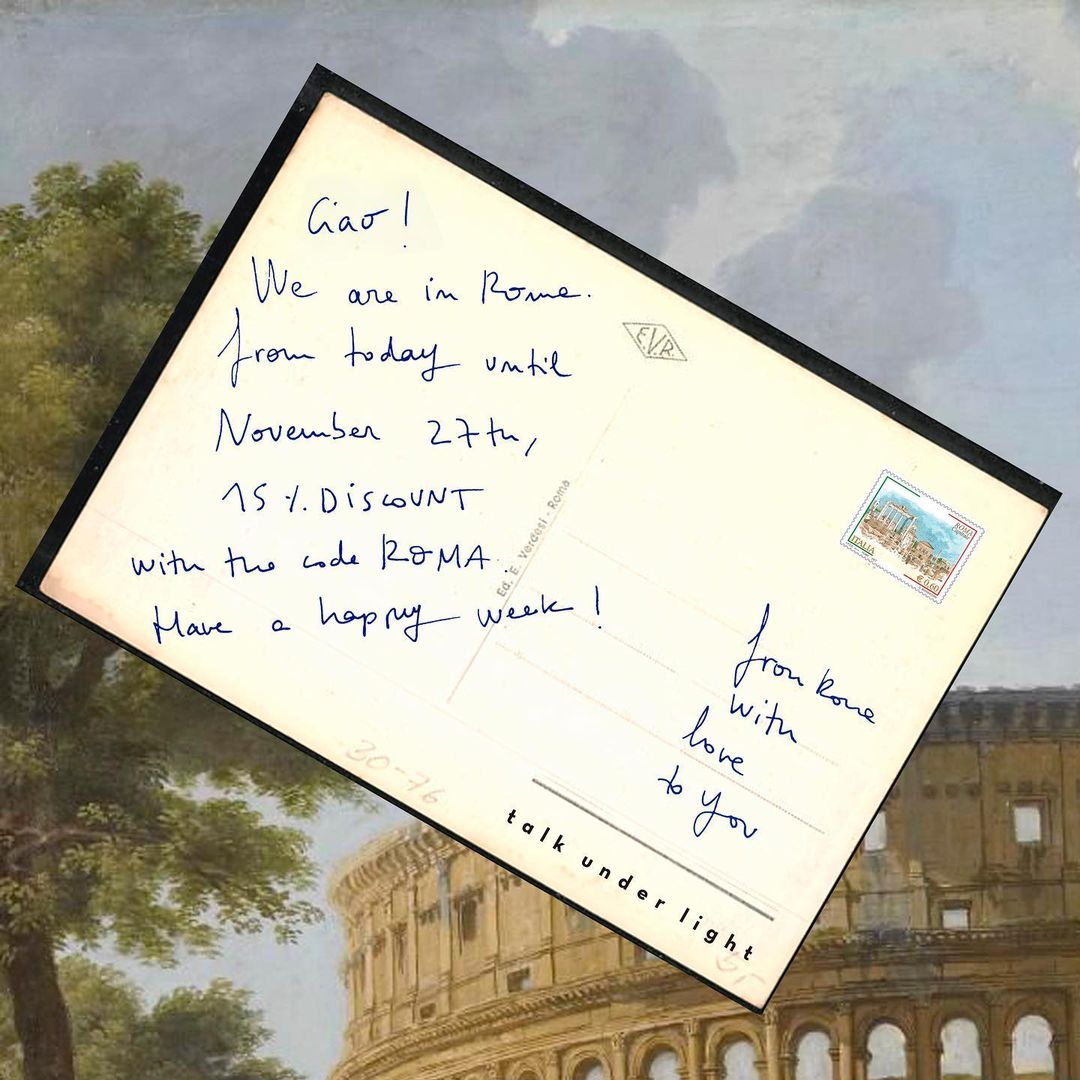 Ciao!
We are in Rome.
from today until
November 27th,
15 %. DISCOUNT
with the code ROMA.
Have a happy week!
E.V.R.
Ed. E. Verdesi - Roma
ROMA
ITALIA
€ 0,60
from Rome
with
love
to you
30-76
talk under light